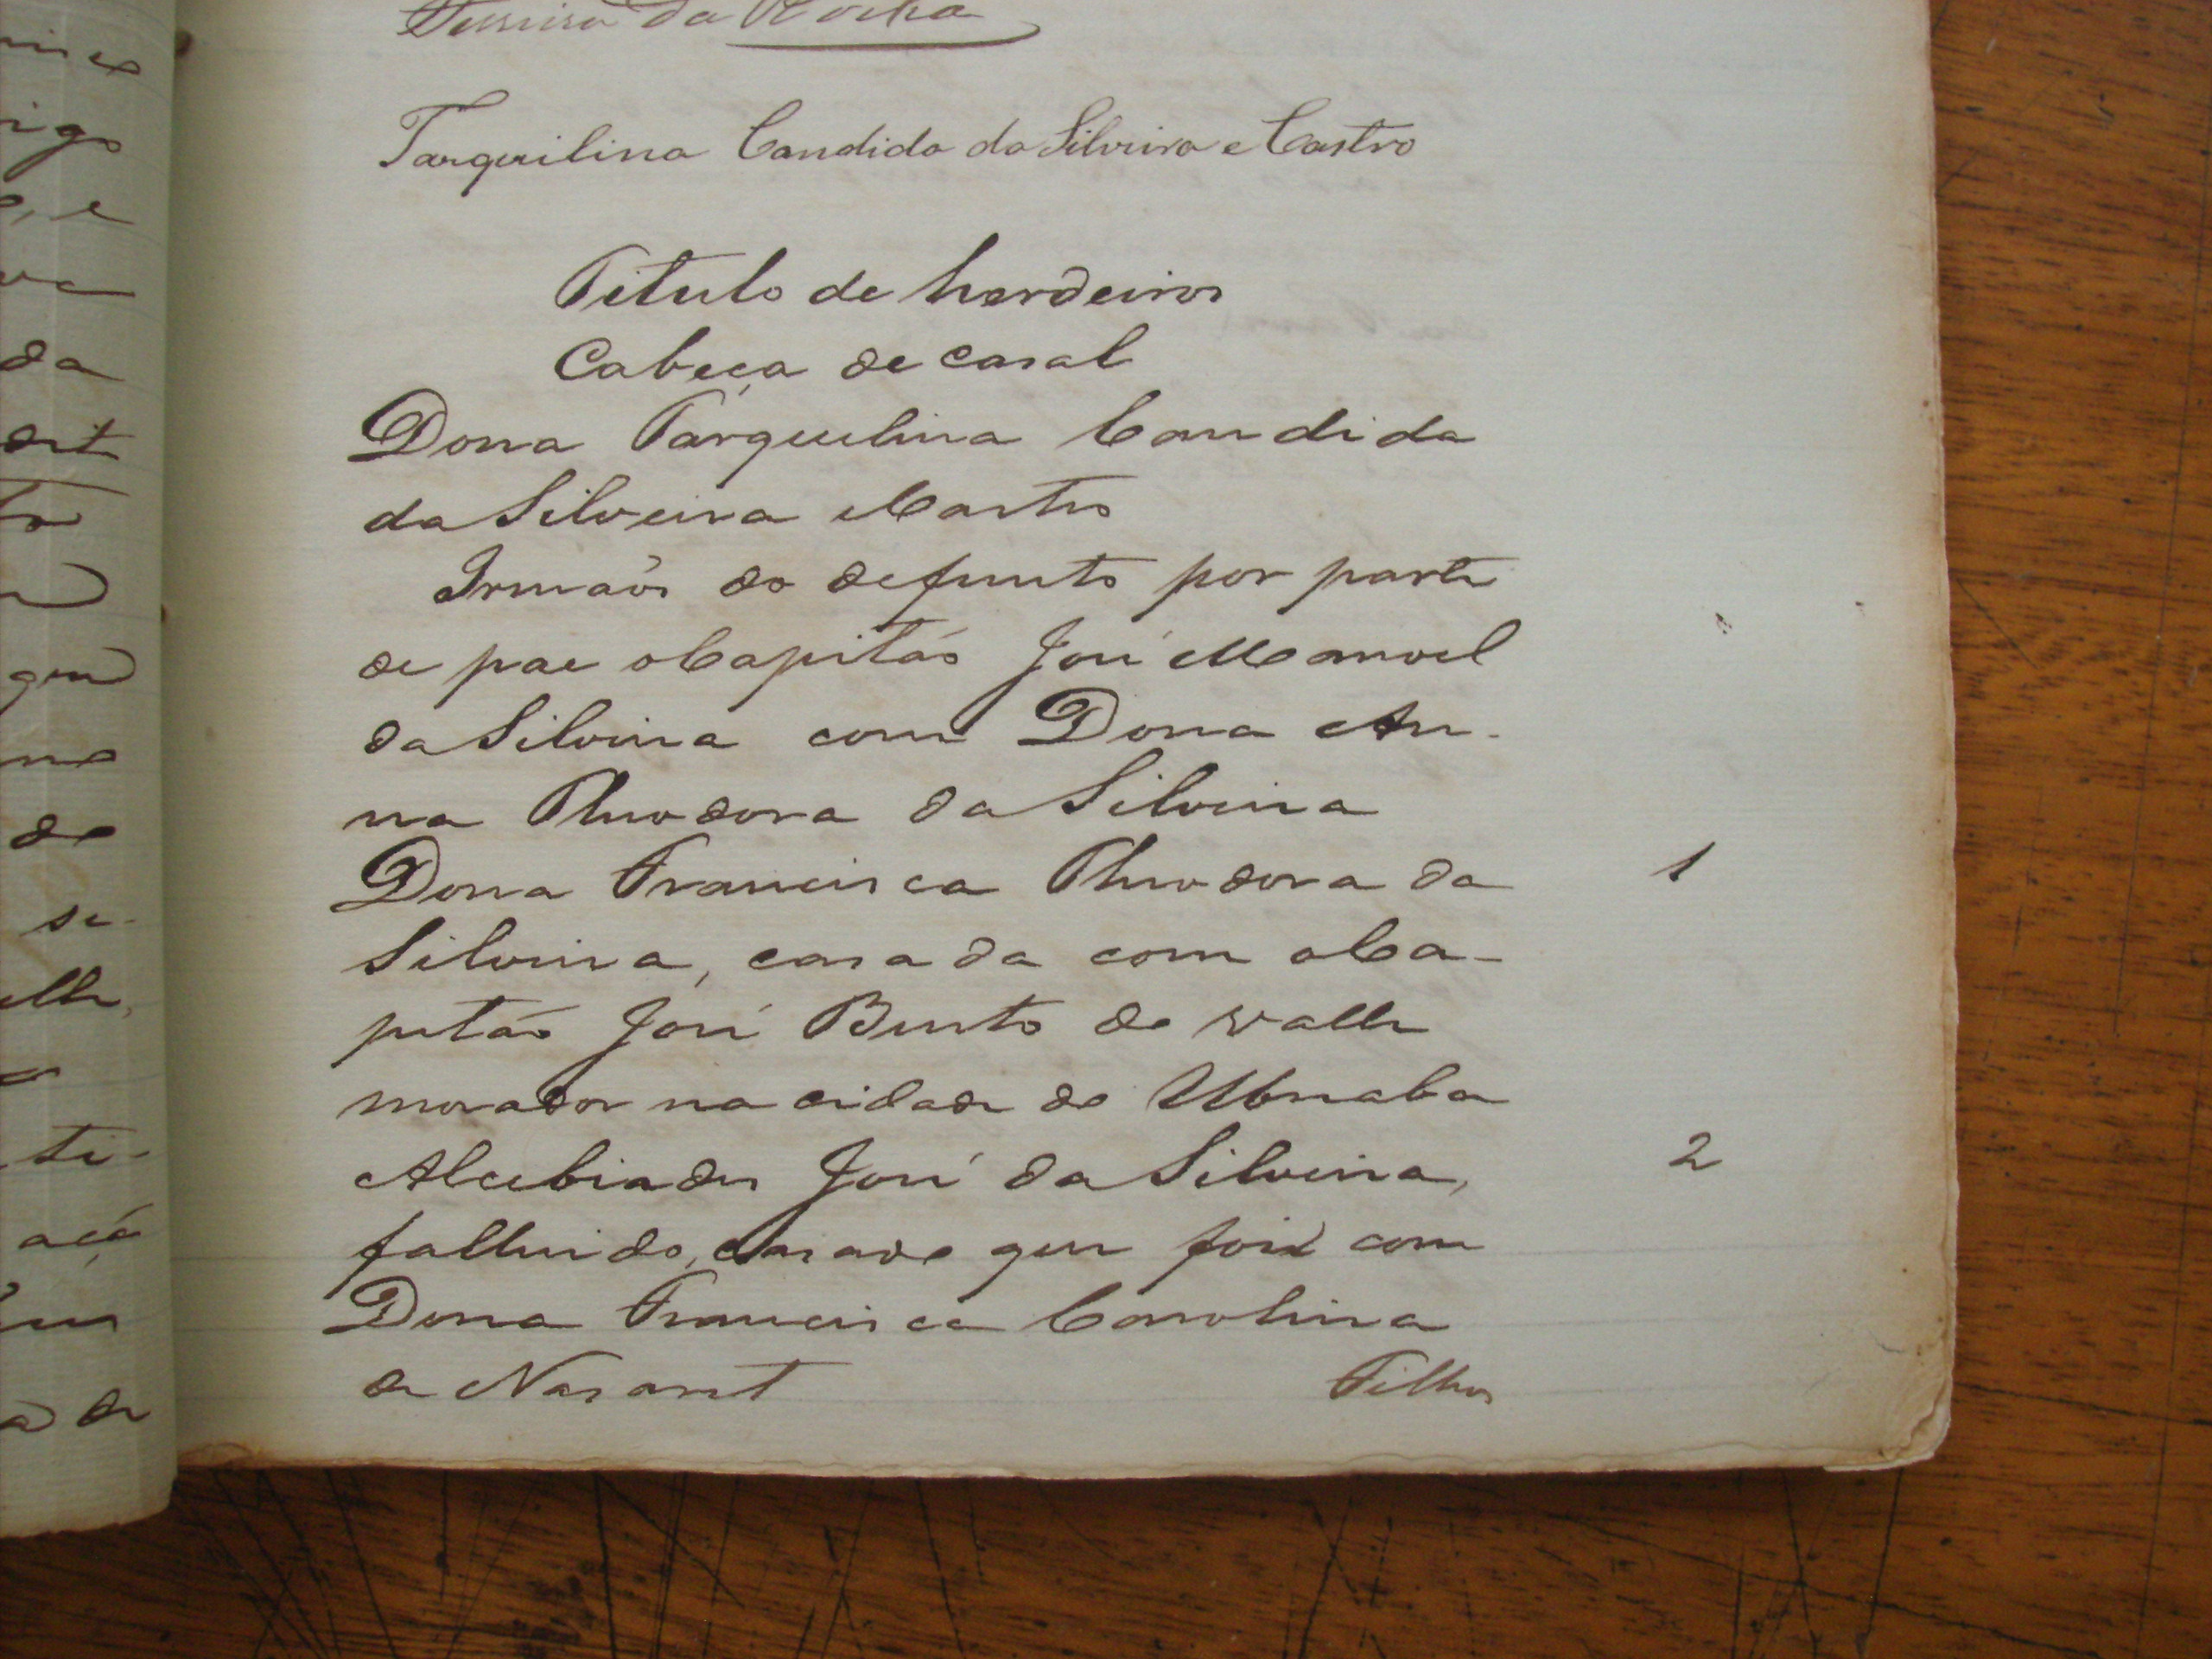 Ferreira da Rocha
Tarquilina Candida da Silveira e Castro
Titulo de herdeiros
Cabeça de casal
Dona Tarquilina Candida
da Silveira e Castro
Irmãos do defunto por parte
de pae o Capitão José Manoel
da Silveira com Dona An-
na Theodora da Silveira
Dona Francisca Theodora da 1
Silveira, casada com o Ca-
pitão José Bento do Valle
morador na cidade de Uberaba
Alcebiades José da Silveira, 2
fallecido, casado que foi com
Dona Francisca Carolina
de Nazaret Filhos